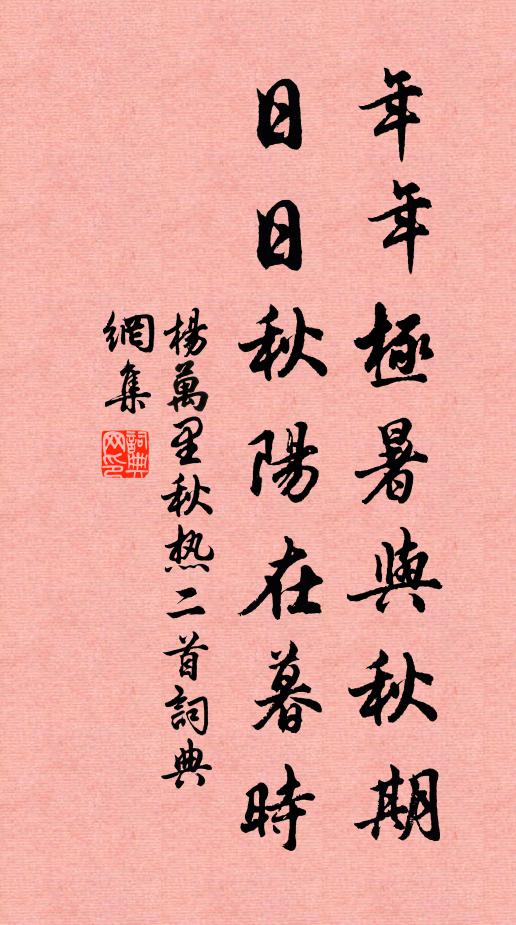 年年極暑與秋期
日日秋陽在暮時
楊萬里秋热二首詞典
網集
詞典
网印